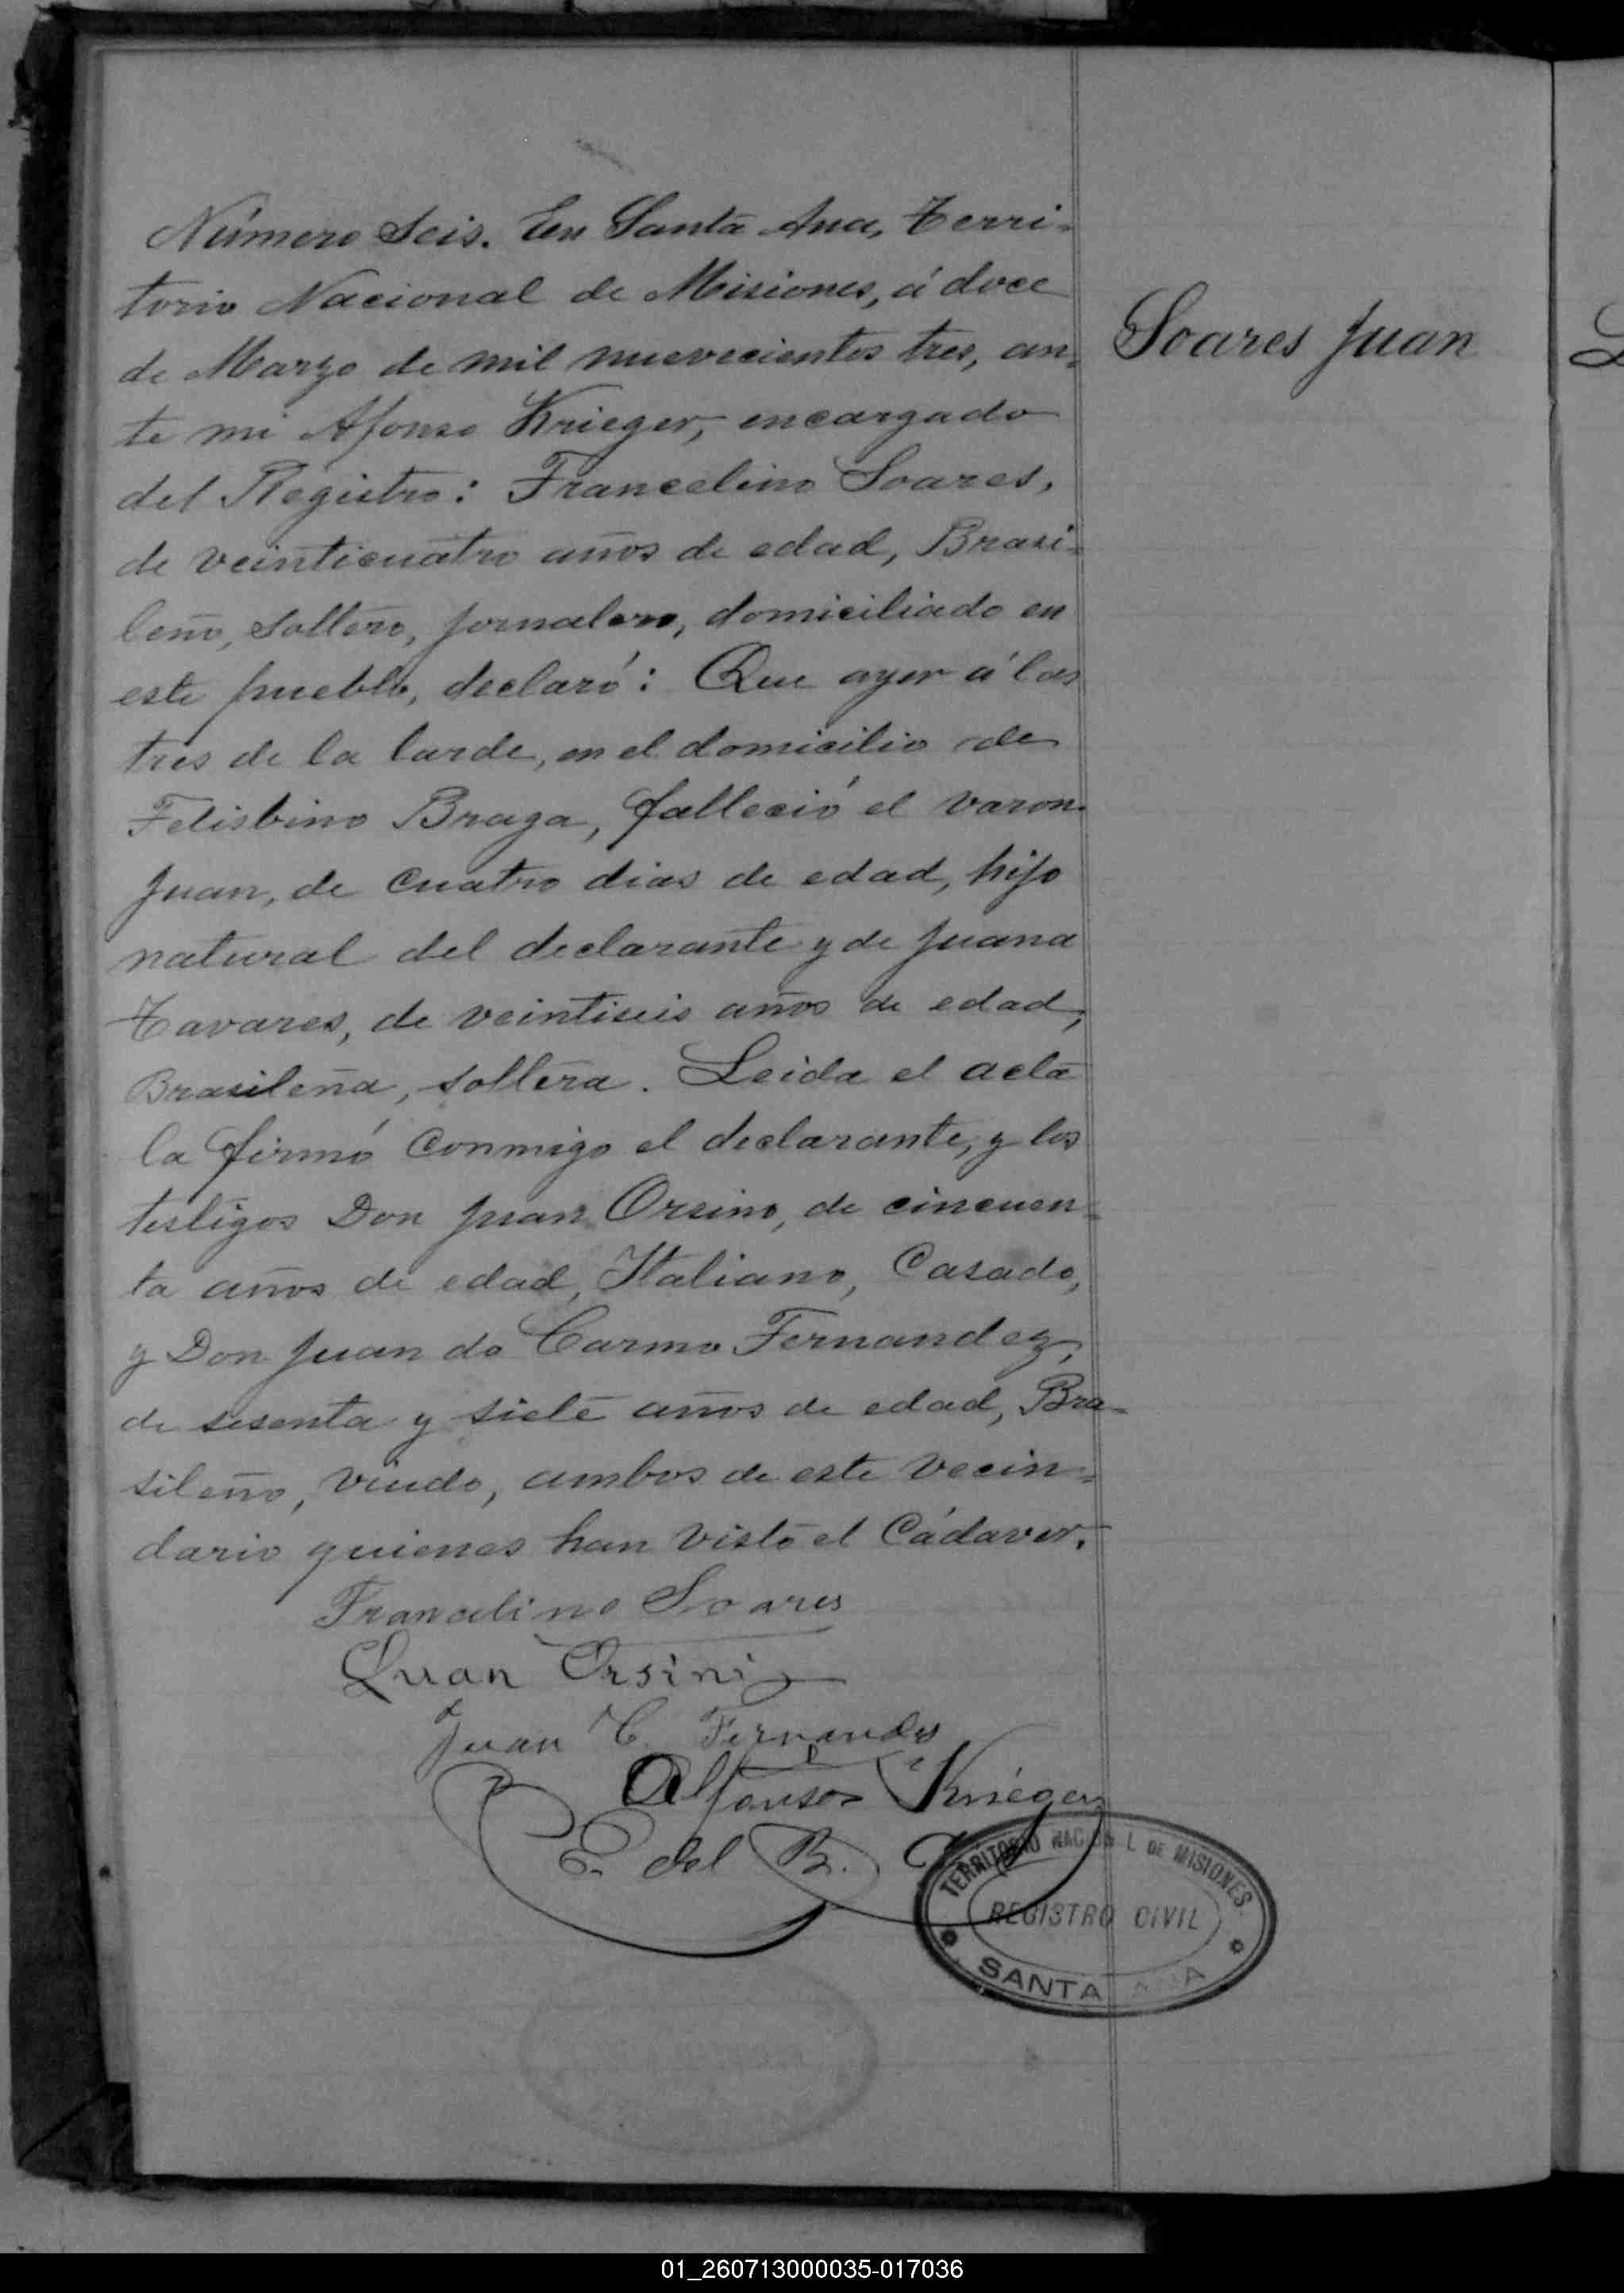 Número Seis. En Santa Ana, Terri-
torio Nacional de Misiones, á doce
de Marzo de mil nuevecientos tres, an-
te mi Afonso Krieger, encargado
del Registro: Francelino Soares,
de veinticuatro años de edad, Brasi-
leño, soltero, jornalero, domiciliado en
este pueblo, declaró: Que ayer á las
tres de la tarde, en el domicilio de
Felisbino Braga, falleció el varon
Juan, de cuatro dias de edad, hijo
natural del declarante y de Juana
Tavares, de veintiseis años de edad,
Brasileña, soltera. Leida el acta
la firmó conmigo el declarante, y los
testigos Don Juan Orsino, de cincuen-
ta años de edad, Italiano, Casado,
y Don Juan do Carmo Fernandez,
de sesenta y siete años de edad, Bra-
sileño, viudo, ambos de este vecin-
dario quienes han visto el Cádaver.
Soares Juan
Francelino Soares
Juan Orsini
Juan C. Fernandes
Alfonso Krieger
E. del R.
TERRITORIO NACIONAL DE MISIONES.
REGISTRO CIVIL
SANTA ANA
01_260713000035-017036